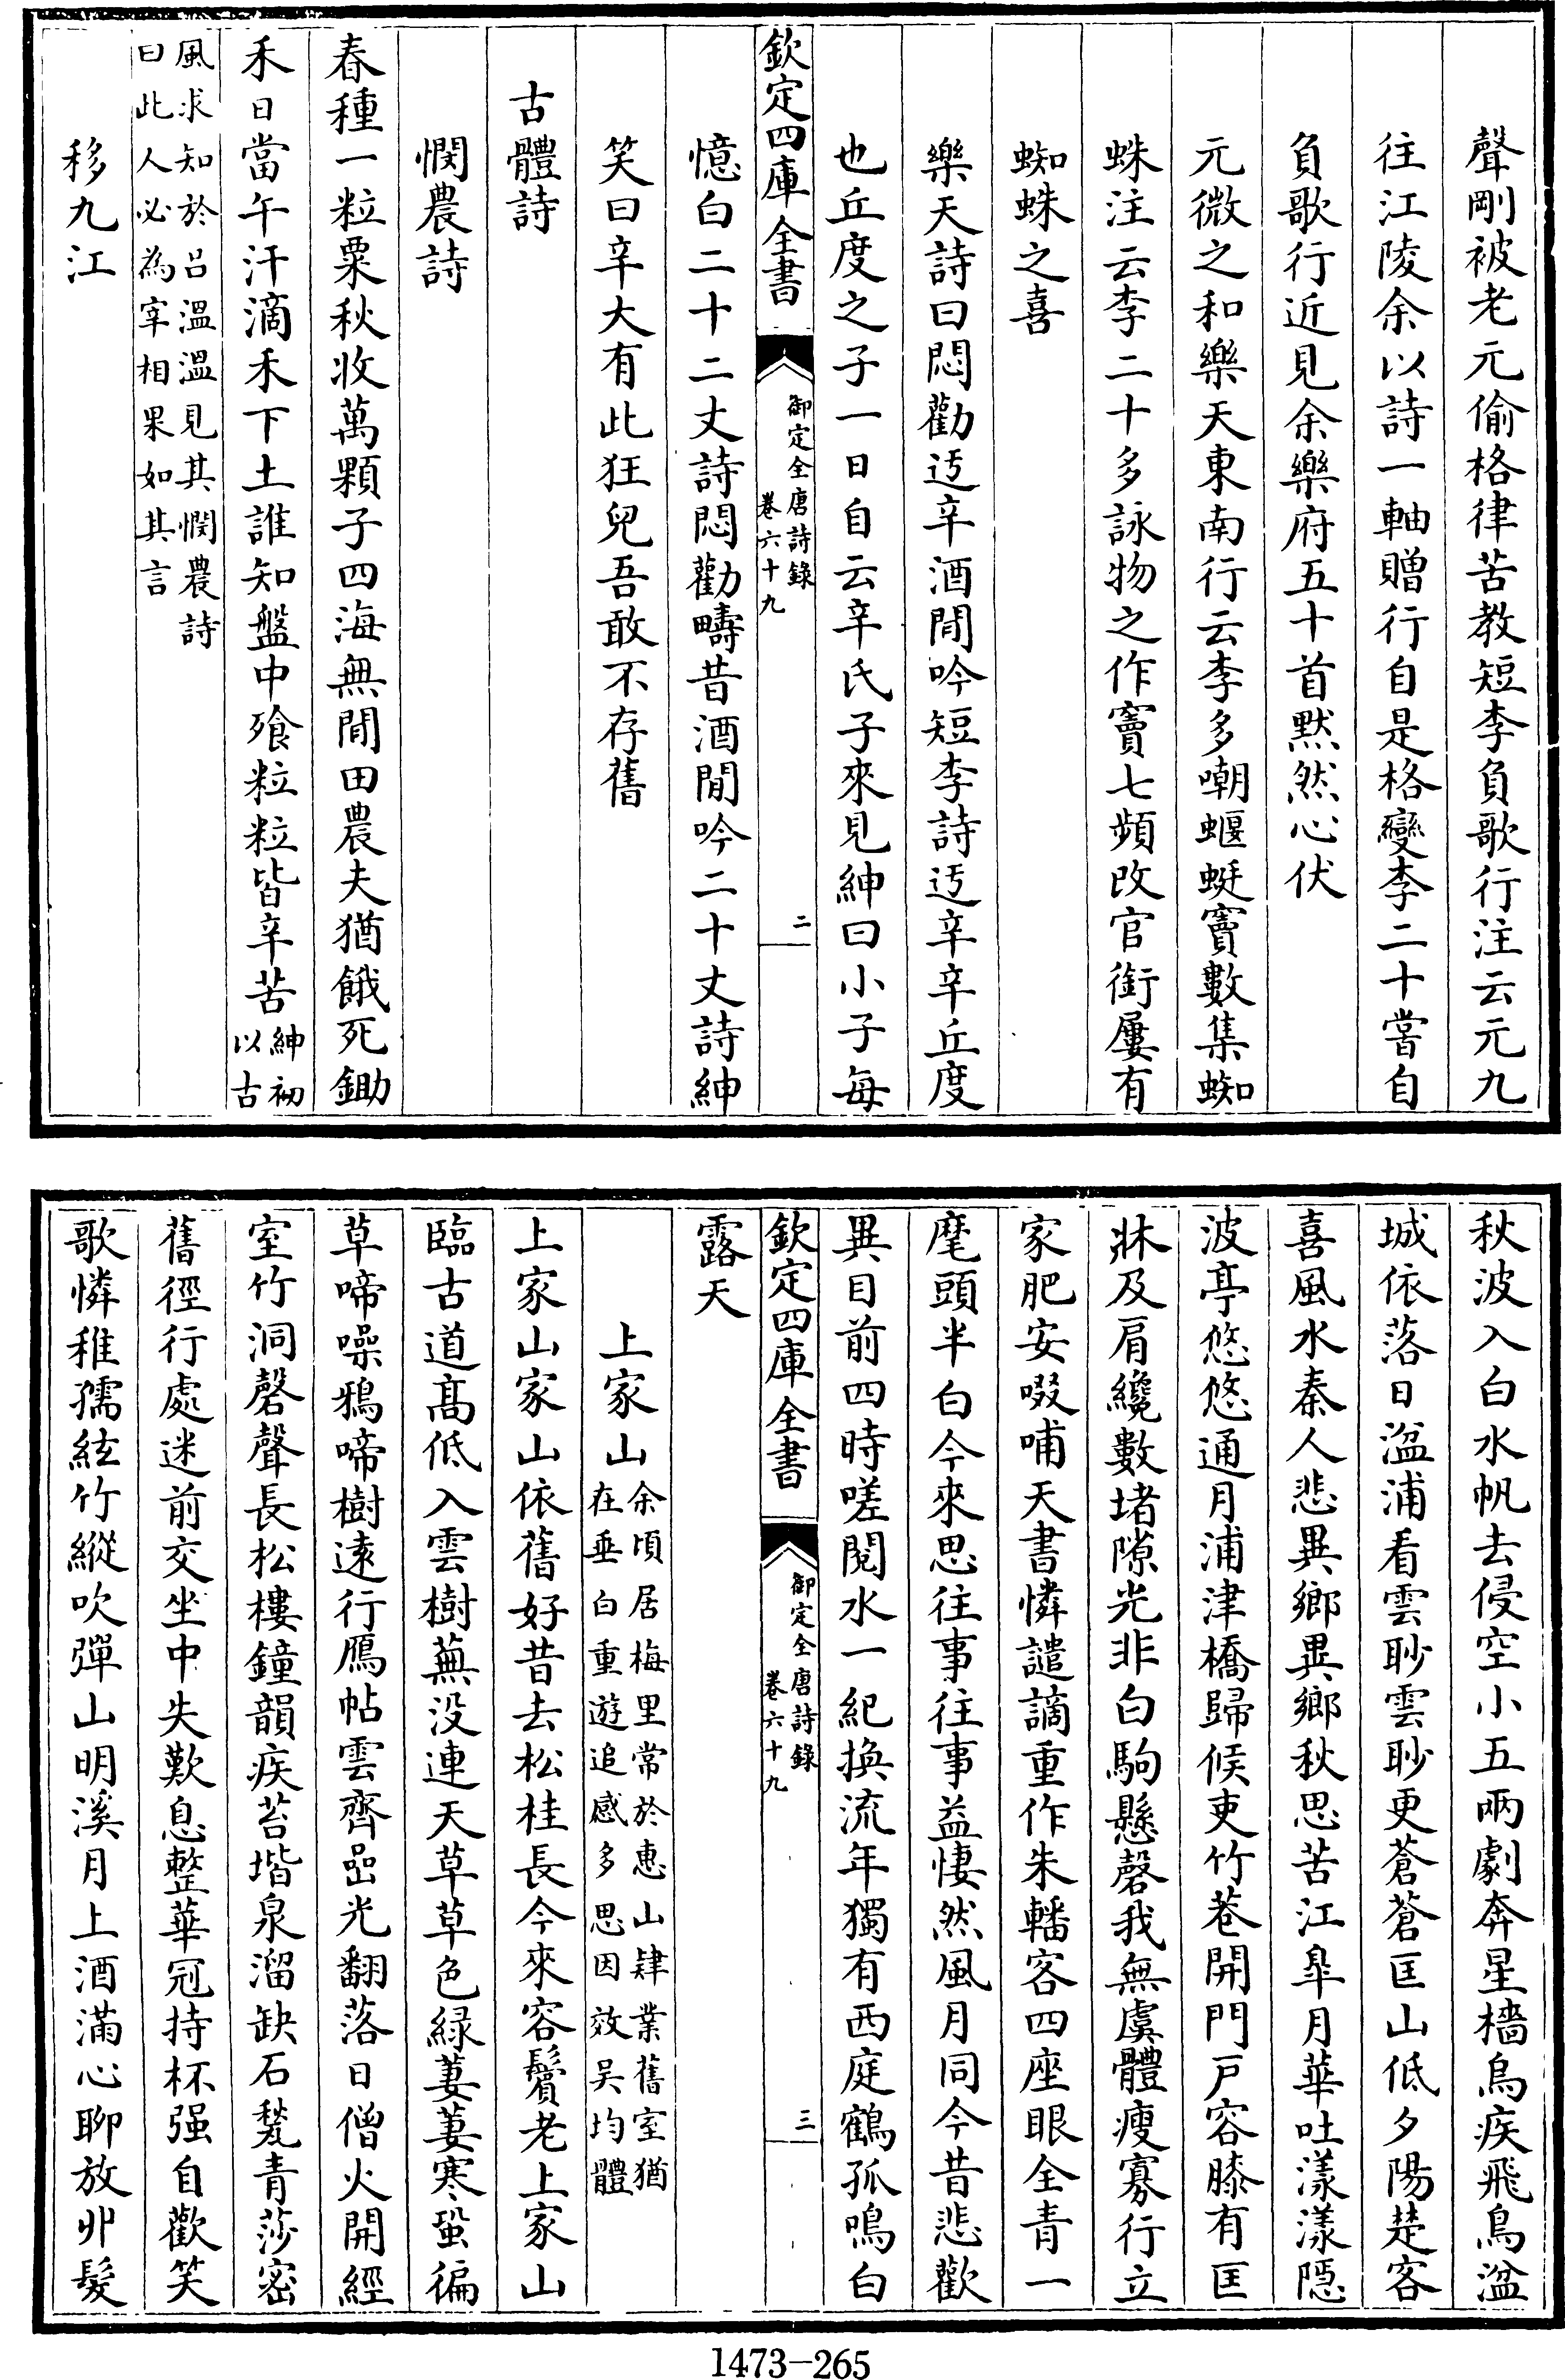 聲剛被老元偷格律苦教短李負歌行注云元九
往江陵余以詩一軸贈行自是格變李二十嘗自
負歌行近見余樂府五十首黙然心伏
元微之和樂天東南行云李多嘲蝘蜓竇數集蜘
蛛注云李二十多詠物之作竇七頻改官銜屢有
蜘蛛之喜
樂天詩曰悶勸迃辛酒閒吟短李詩迃辛辛丘度
也丘度之子一日自云辛氏子來見紳曰小子每
欽定四庫全書
御定全唐詩錄
卷六十九
二
憶白二十二丈詩悶勸疇昔酒閒吟二十丈詩紳
笑曰辛大有此狂兒吾敢不存舊
古體詩
憫農詩
春種一粒粟秋收萬顆子四海無閒田農夫猶餓死鋤
禾日當午汗滴禾下土誰知盤中飱粒粒皆辛苦
紳初
以古
風求知於呂溫溫見其憫農詩
曰此人必為宰相果如其言
移九江
秋波入白水帆去侵空小五兩劇奔星檣烏疾飛鳥湓
城依落日湓浦看雲眇雲眇更蒼蒼匡山低夕陽楚客
喜風水秦人悲異鄉異鄉秋思苦江臯月華吐漾漾隱
波亭悠悠通月浦津橋歸候吏竹巷開門戶容膝有匡
牀及肩纔數堵隙光非白駒懸磬我無虞體瘦寡行立
家肥安啜哺天書憐譴謫重作朱轓客四座眼全青一
麾頭半白今來思往事往事益悽然風月同今昔悲歡
異目前四時嗟閱水一紀換流年獨有西庭鶴孤鳴白
欽定四庫全書
御定全唐詩錄
卷六十九
三
露天
上家山
余頃居梅里常於惠山肄業舊室猶
在垂白重遊追感多思因效吳均體
上家山家山依舊好昔去松桂長今來容鬢老上家山
臨古道高低入雲樹蕪没連天草草色緑萋萋寒蛩徧
草啼噪鴉啼樹遠行鴈帖雲齊喦光翻落日僧火開經
室竹洞磬聲長松樓鐘韻疾苔堦泉溜缺石甃青莎密
舊徑行處迷前交坐中失歎息整華冠持杯强自歡笑
歌憐稚孺絃竹縱吹彈山明溪月上酒滿心聊放丱髮
1473-265